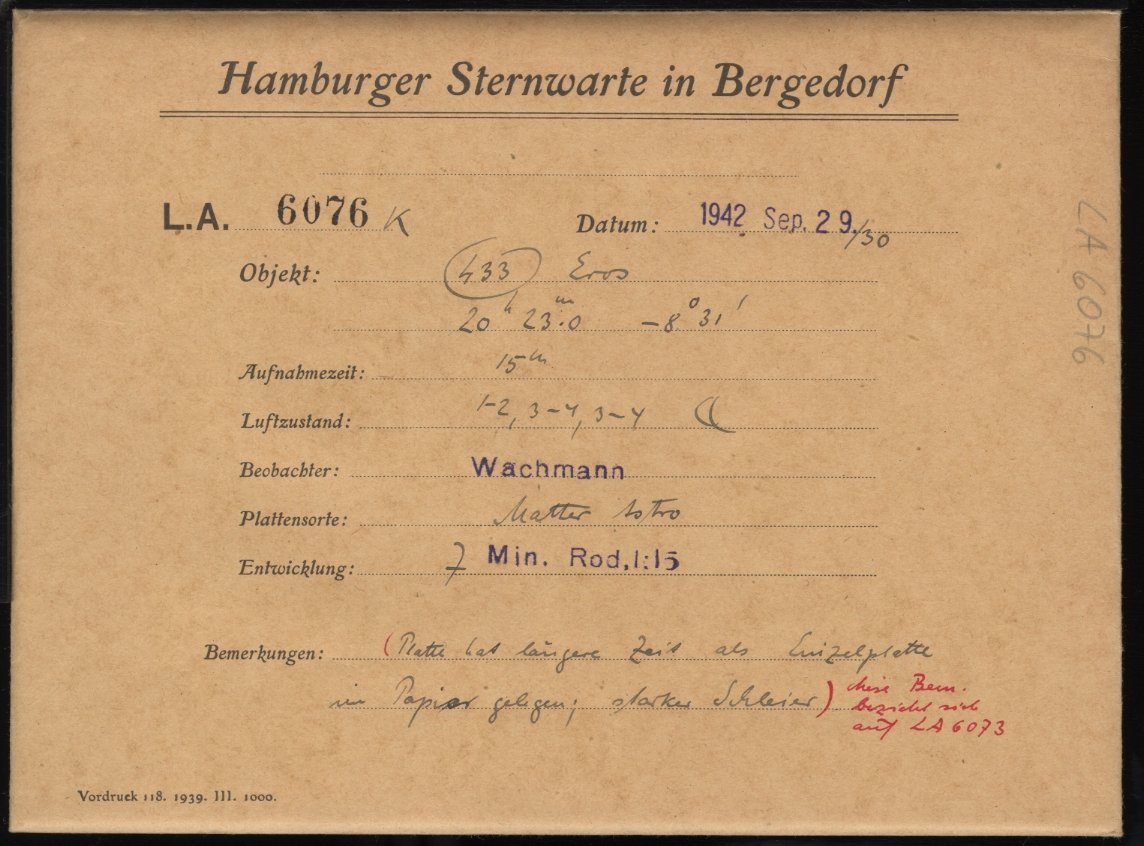 Hamburger Sternwarte in Bergedorf
L.A. 6076 K Datum: 1942 Sep. 29./30
Objekt: (433) Eros
20h 23m.0 -8° 31'
Aufnahmezeit: 15m
Luftzustand: 1-2, 3-4, 3-4
Beobachter: Wachmann
Plattensorte: Matter Astro
Entwicklung: 7 Min. Rod.1:15
Bemerkungen: (Platte hat längere Zeit als Einzelplatte
im Papier gelegen; starker Schleier) diese Bem.
bezieht sich
auf LA 6073
Vordruck 118. 1939. III. 1000.
LA 6076